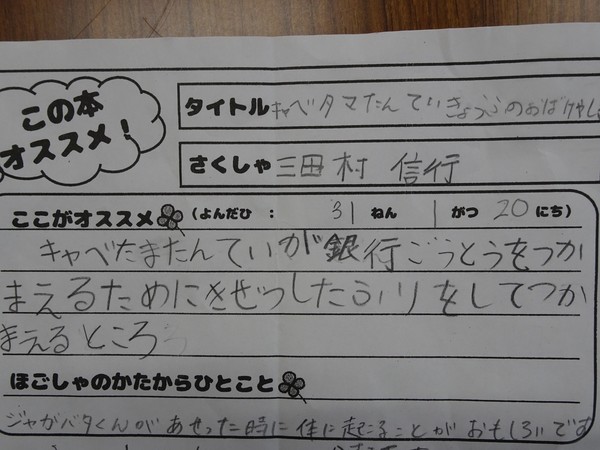 この本
オススメ!
タイトル キャベタマたんていきょうふのおばけやし
さくしゃ 三田村 信行
ここがオススメ (よんだひ : 31 ねん 1 がつ 20 にち)
キャベたまたんていが銀行ごうとうをつか
まえるためにきぜつしたふりをしてつか
まえるところ
ほごしゃのかたからひとこと
ジャガバタくんがあせった時に体に起こることがおもしろいです